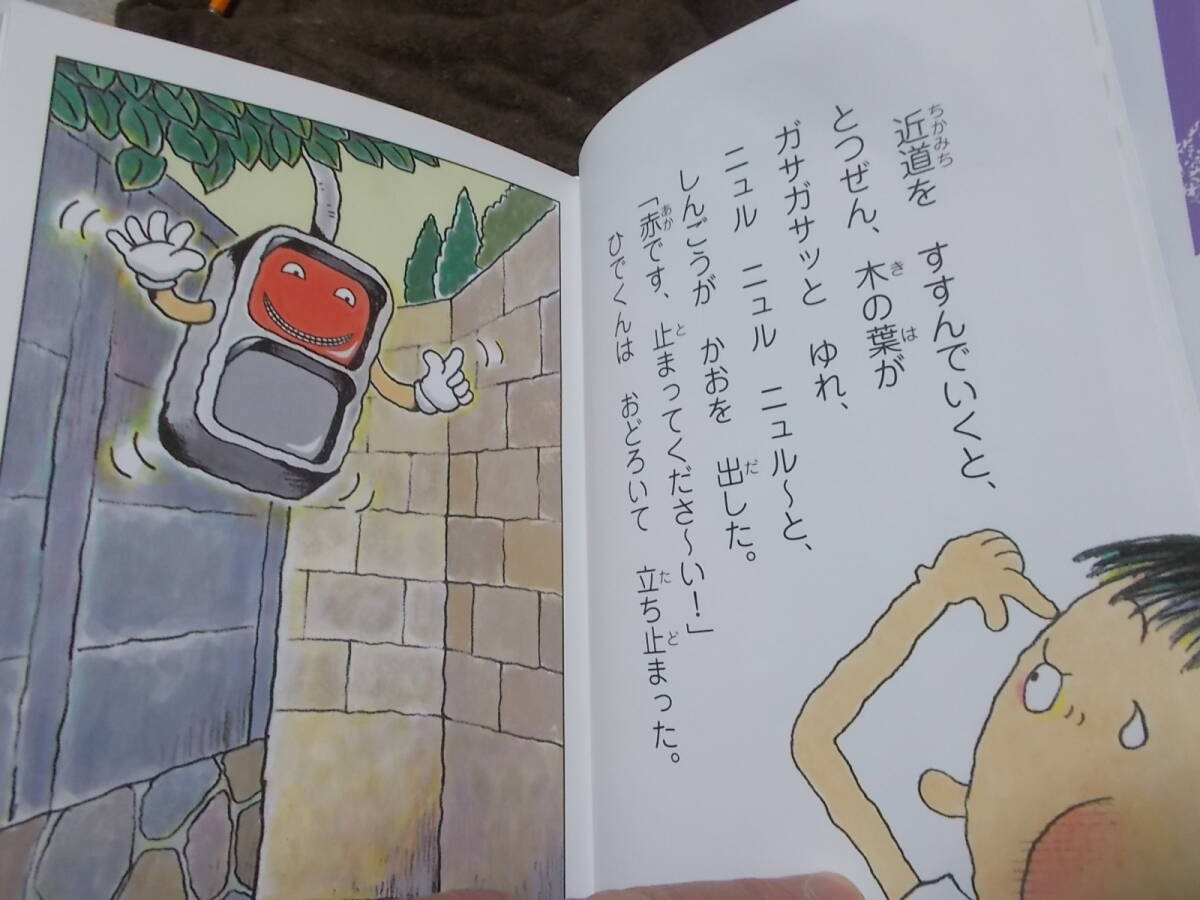 近道を すすんでいくと、
とつぜん、木の葉が
ガサガサッと ゆれ、
ニュル ニュル ニュル〜と、
しんごうが かおを 出した。
「赤です、止まってくださ〜い！」
ひでくんは おどろいて 立ち止まった。